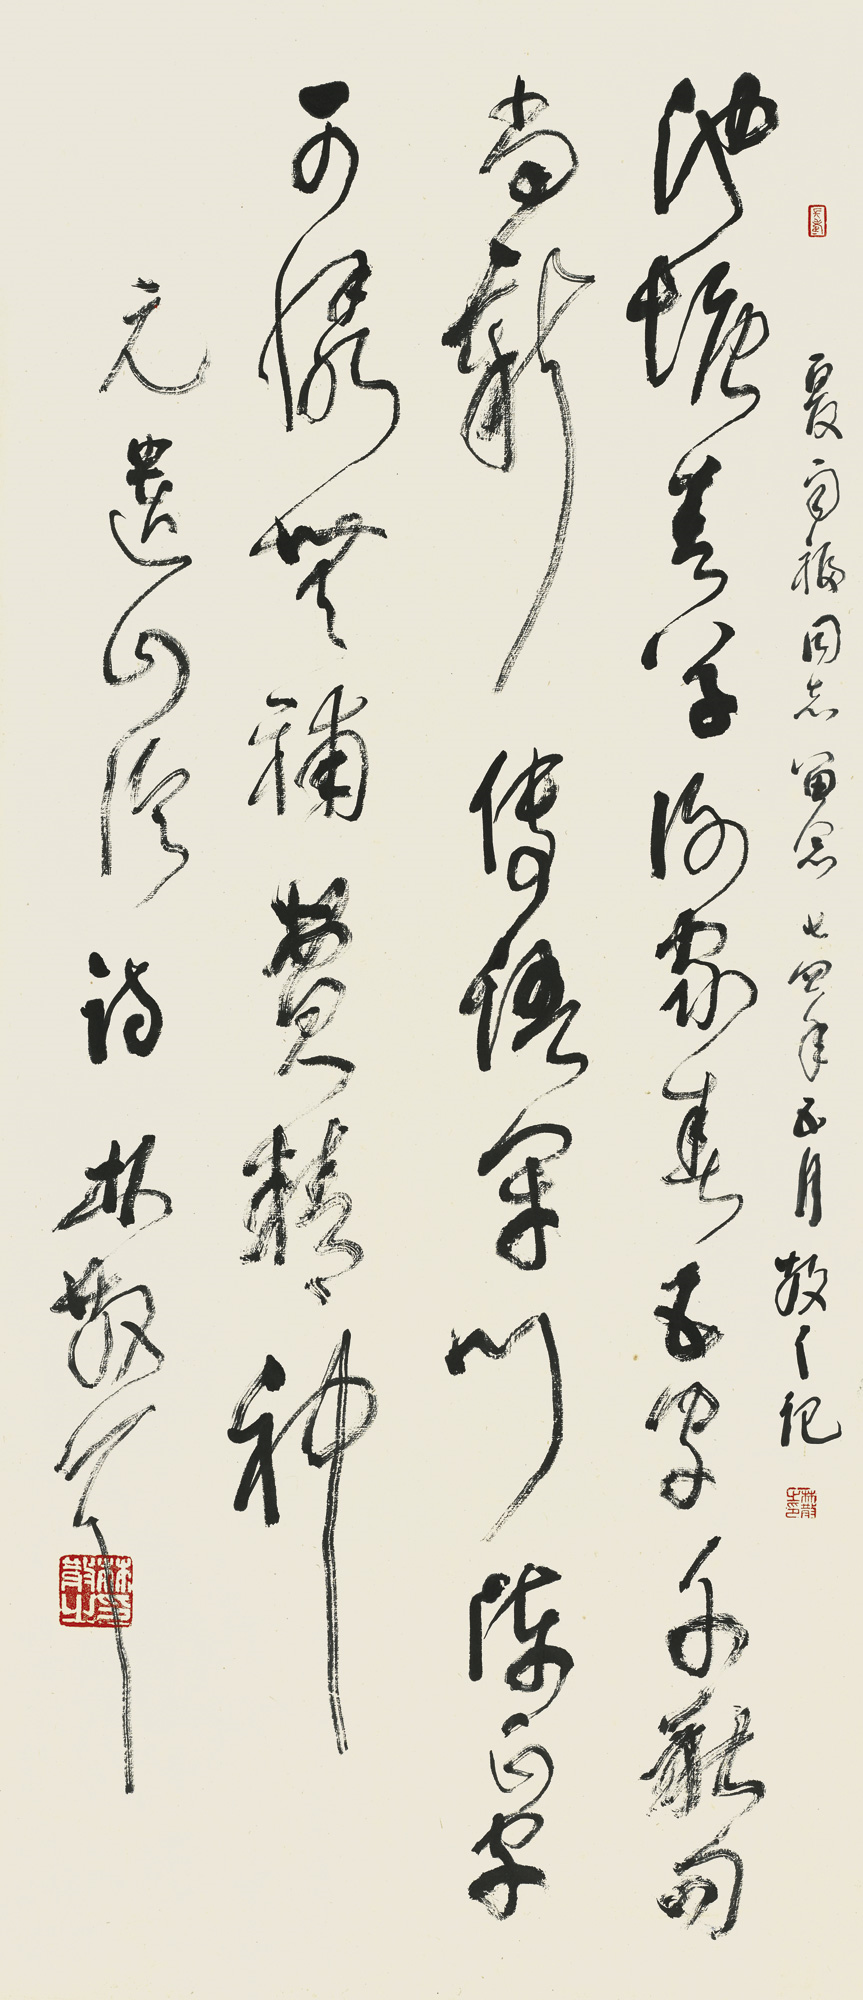 夏同志留念 七四年五月 散之记
池塘春草谢家春五字千句
尚新 传语闭门陈正字
可怜无补费精神
元遗山论诗 林散耳
林散之印